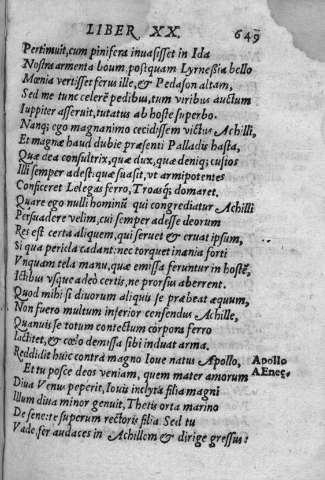 LIBER XX. 649
Pertimuit, cum pinifera inuasisset in Ida
Nostra armenta boum. postquam Lyrneßia bello
Mœnia vertisset ferus ille, & Pedason altam,
Sed me tunc celerẽ pedibus, tum viribus auctum
Iuppiter asseruit, tutatus ab hoste superbo.
Nanq; ego magnanimo cecidissem victus Achilli,
Et magnæ haud dubie præsenti Palladis hasta,
Quæ dea consultrix, quæ dux, quæ deniq; custos
Illi semper adest: quæ suasit, vt armipotentes
Conficeret Lelegas ferro, Troasq; domaret.
Quare ego nulli hominũ qui congrediatur Achilli
Persuadere velim, cui semper adesse deorum
Res est certa aliquem, qui seruet & eruat ipsum,
Si qua pericla cadant: nec torquet inania forti
Vnquam tela manu, quæ emissa feruntur in hostẽ,
Ictibus vsque adeò certis, ne prorsus aberrent.
Quod mihi si diuorum aliquis se præbeat æquum,
Non fuero multum inferior censendus Achille,
Quanuis se totum contectum corpora ferro
Iactitet, & cœlo demissa sibi induat arma.
Reddidit huic contrà magno Ioue natus Apollo, Apollo
Et tu posce deos veniam, quem mater amorum AEneę.
Diua Venus peperit, Iouis inclyta filia magni
Illum diua minor genuit, Thetis orta marino
De sene: te superum rectoris filia. Sed tu
Vade, fer audaces in Achillem & dirige gressus: